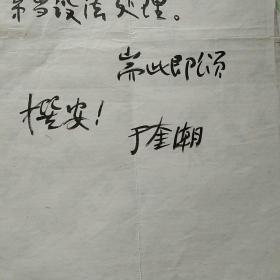 弟当设法处理。
耑此即颂
撰安！
于奎潮